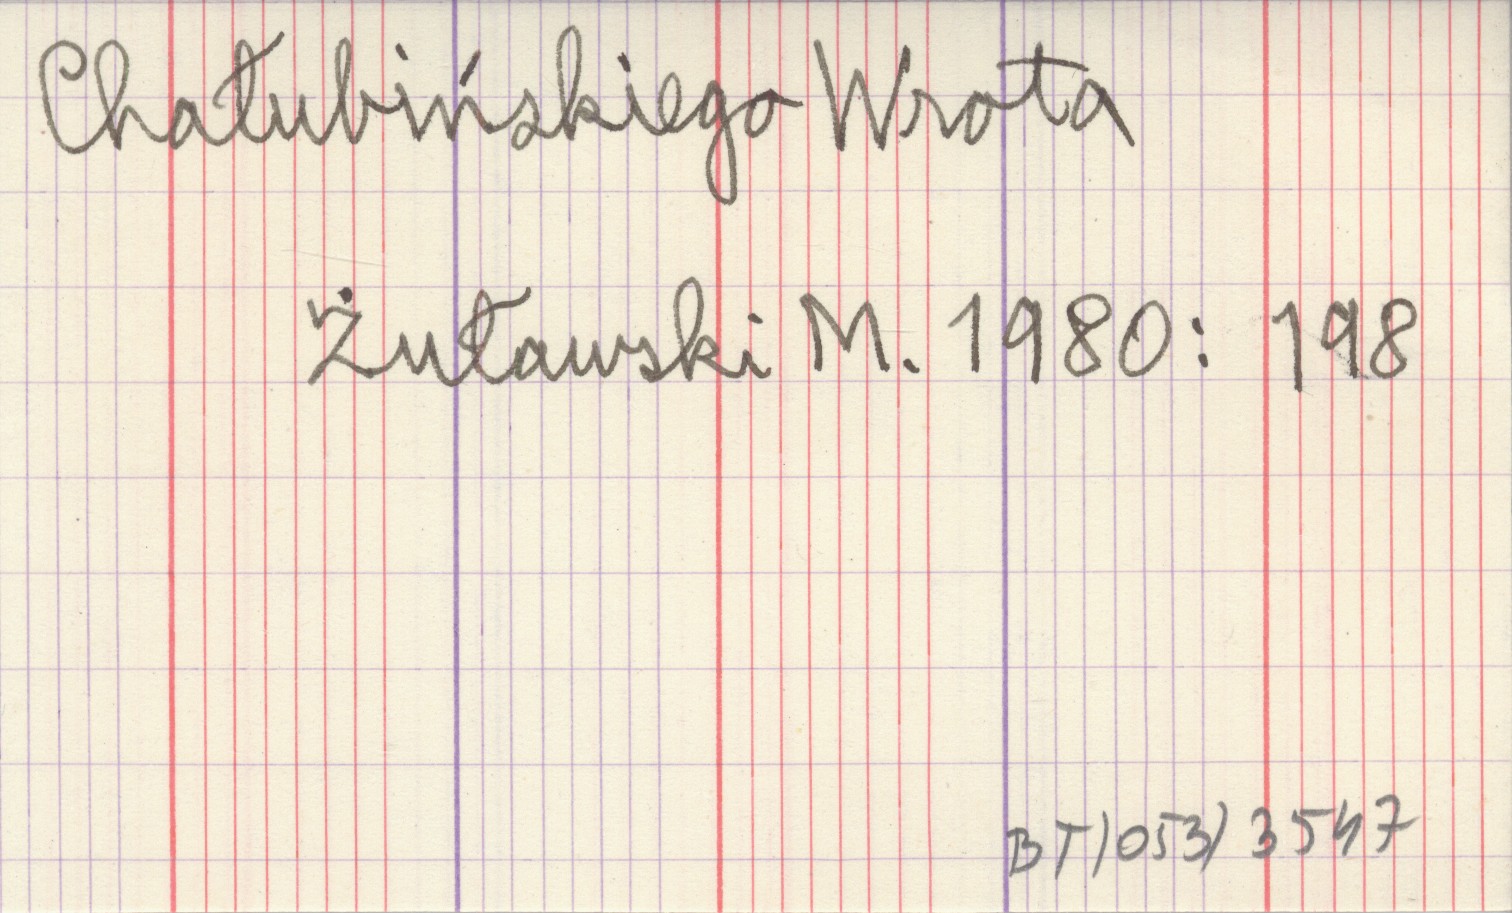 Chałubińskiego Wrota
Żuławski M. 1980: 198
BT/053/3547